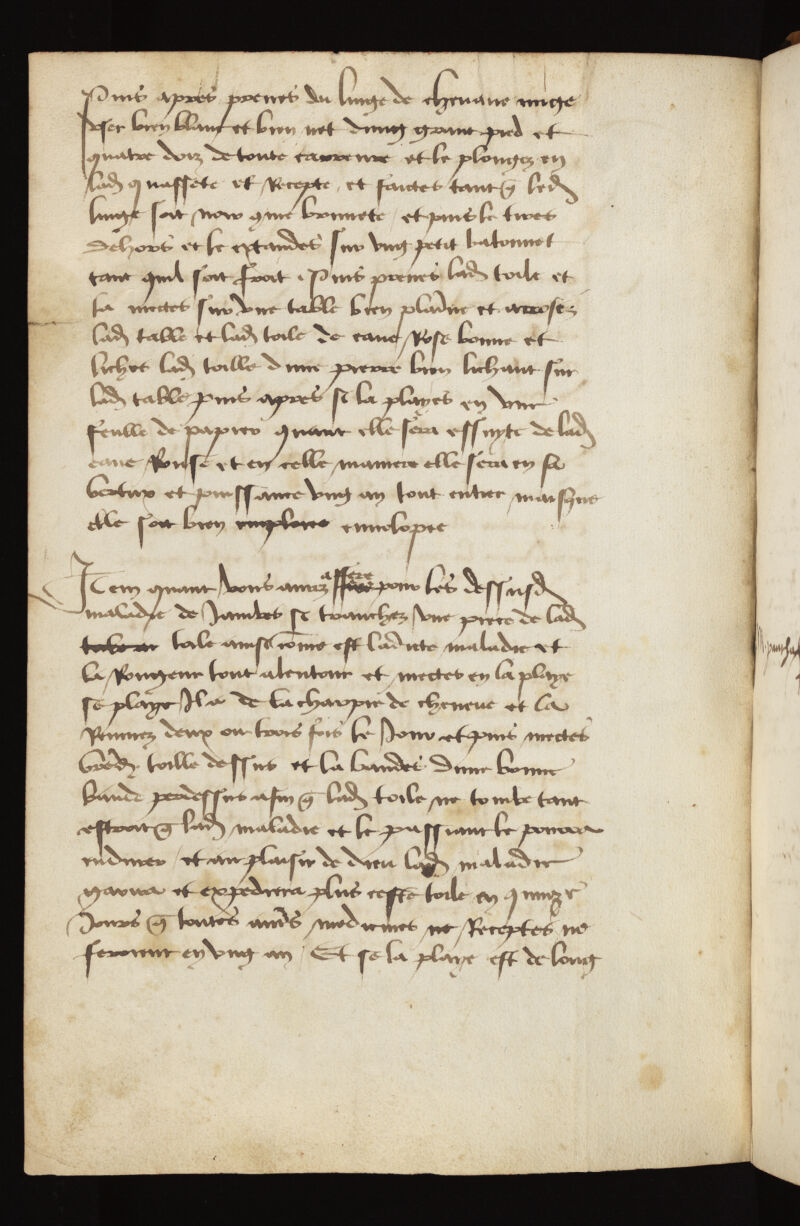 Puis apres prenes du linge de chenave linge
user bien blanc et bien net dung grant pied et
quatre doiz de toute carreure et le plonges en
lad quassete et Recepte et faictes tant q led
linge soit noir come bonnete et puis le tires
dehors et le extandes sur ung petit batonnet
tant quil soit froit . Puis prenes lad toile et
la mectes sur une table bien plaine et arroses
lad table et lad toile de eaue Rose bonne et
liches lad toille dune pierre bien lichant sur
lad table puis apres se la playes en une
feulle de papier quant elle sera essuyte de lad
eaue Rouse et en celle maniere elle sera en sa
vertux et puissance ung an tout entier mais que
elle soit bien envelopee
Item quant vous aures affere pour les dessusd
maladie de Jambes se tranches une piece de lad
toile ainsi come est ladicte maladie et
la Rongeur tout alentour et mectes en la playe
se playe Il a de la charpie de cheneve et la
Remues deux ou trois fois le Jour et puis mectes
toille dessus et la bandes dune bonne
bande perdessus afin q lad toile ne tombe tant
estroit q lad maladie et le passiant le pourra
endurer et au plaisir de dieu lad maladie
garira et expediera plus ceste toile en quinze
Jours q toutes aut(re)s medicines ne Receptes ne
feroient en ung an Et se la playe est de long